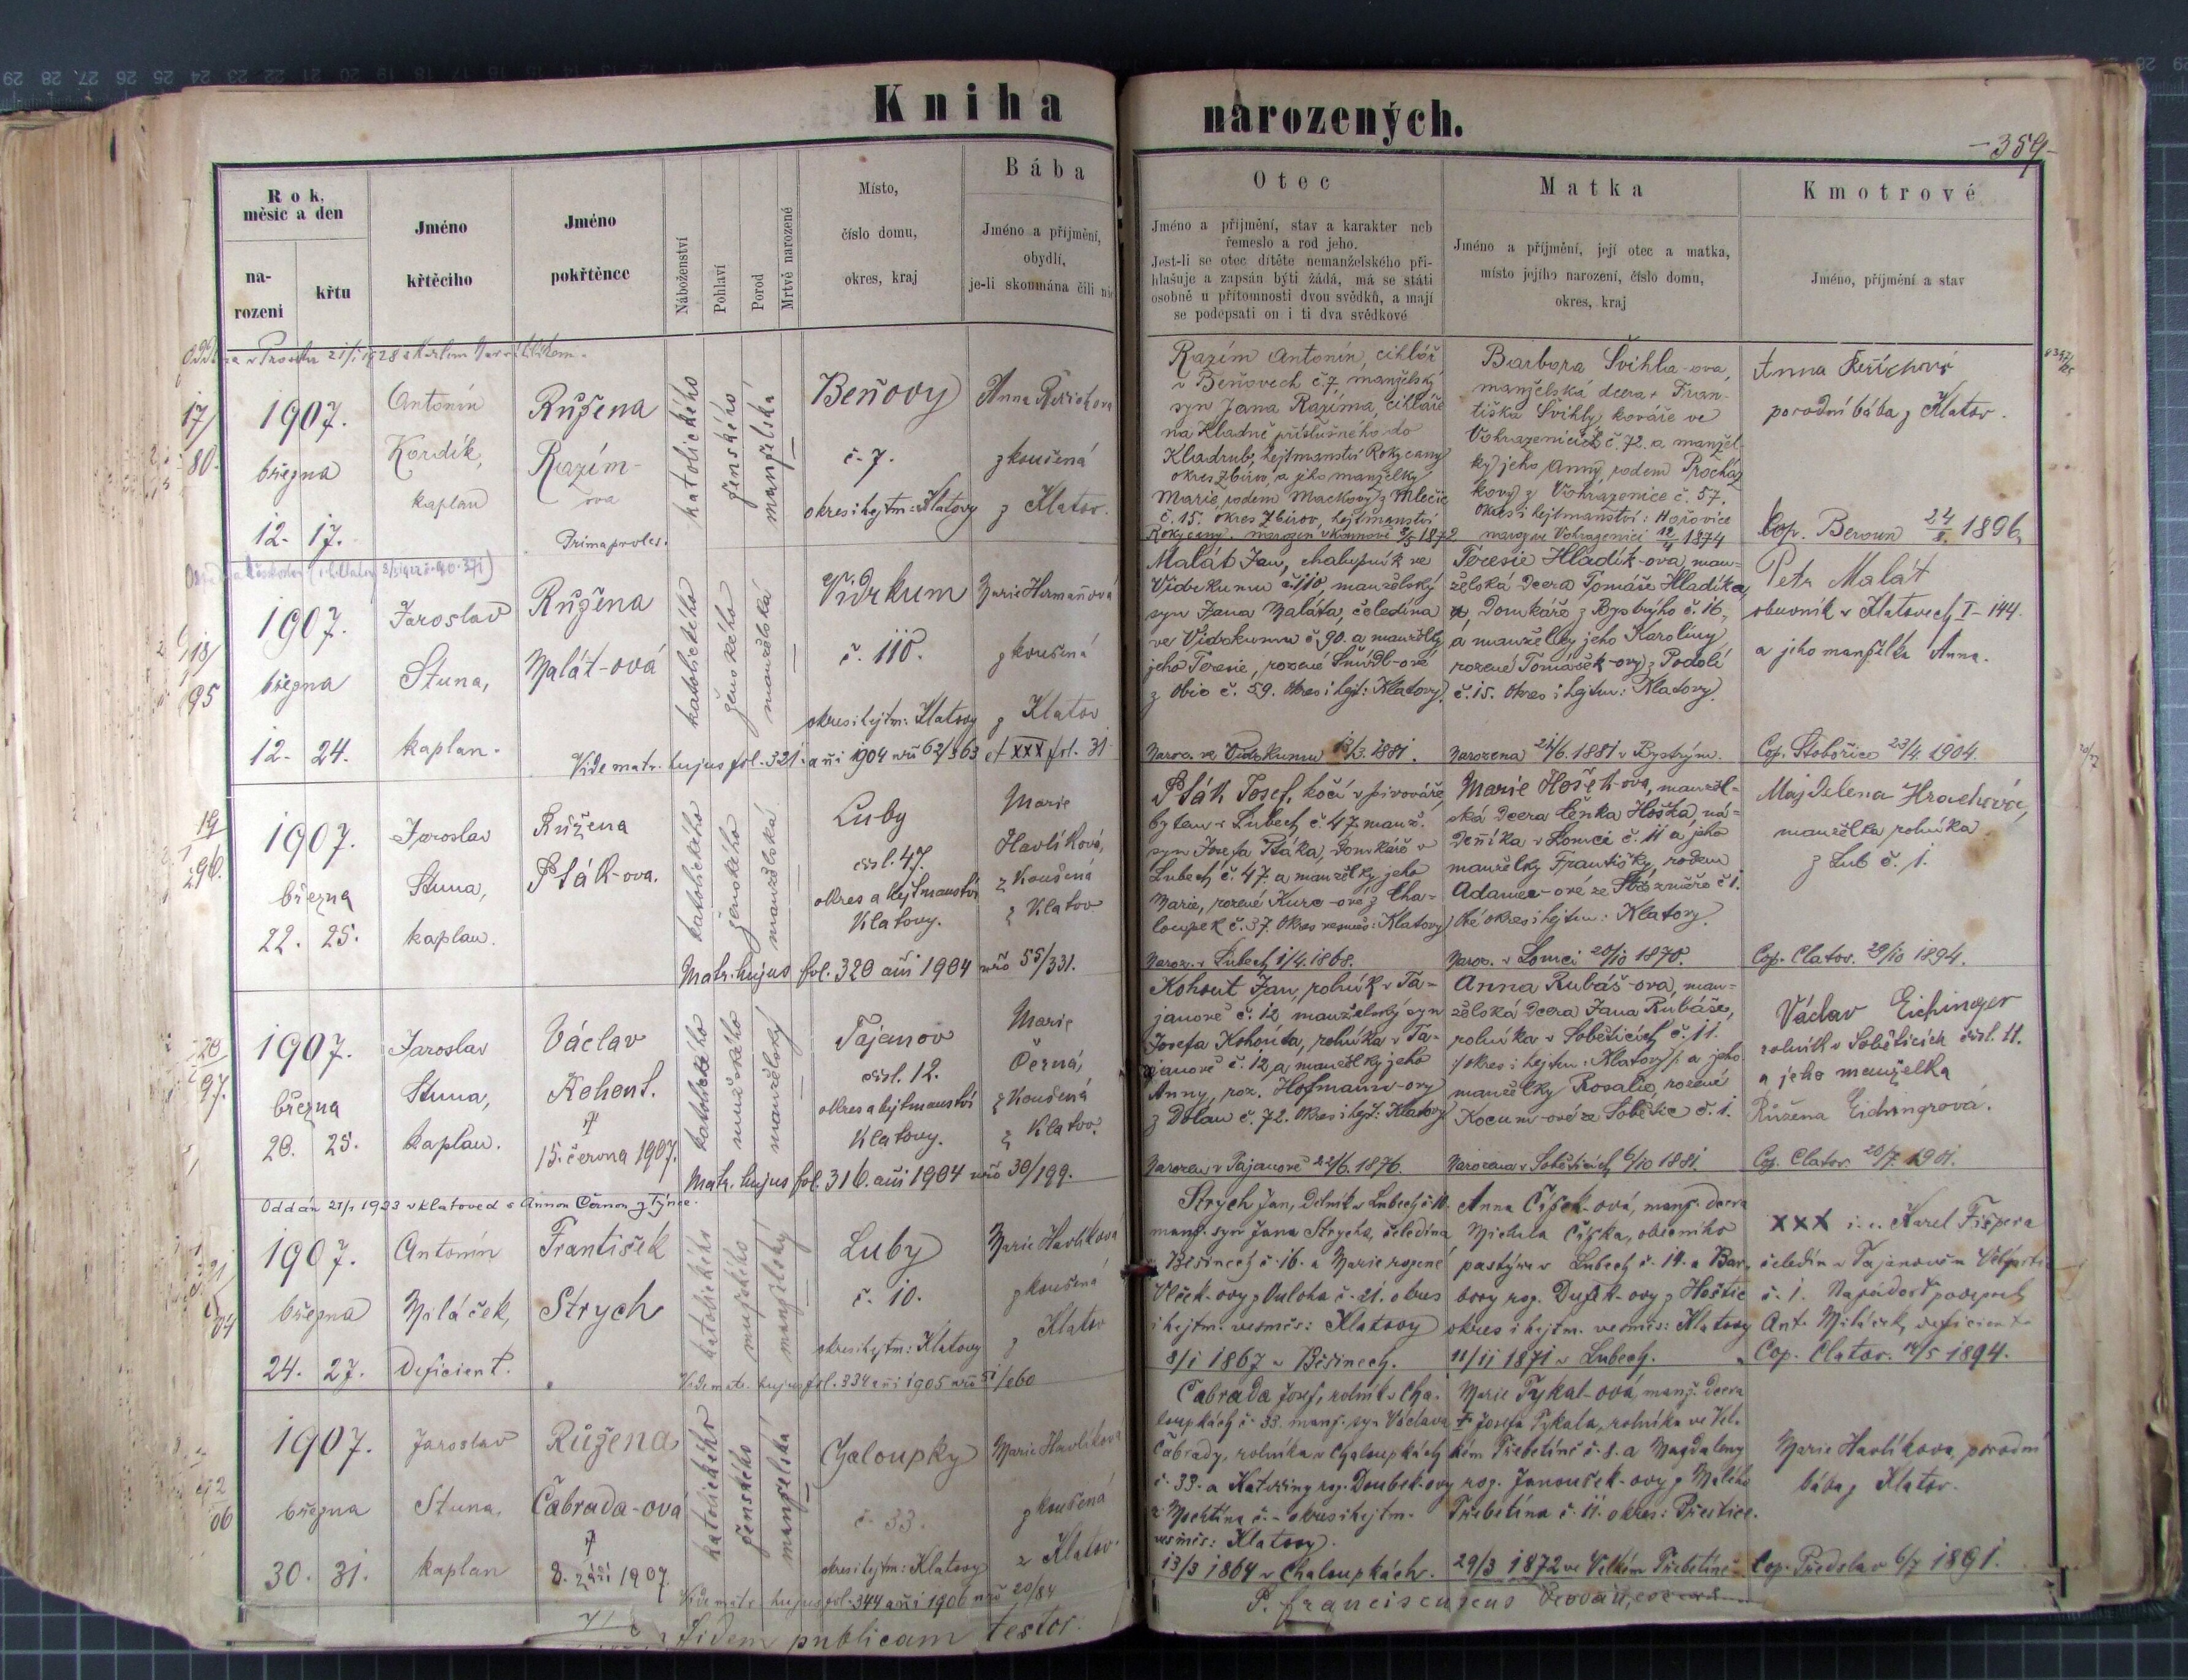 Kniha narozených.
-359-
Rok, měsíc a den
narozeni
křtu
Jméno křtěcího
Jméno pokřtěnce
Náboženství
Pohlaví
Porod
Mrtvě narozené
Místo,
číslo domu,
okres, kraj
Bába
Jméno a příjmění,
obydlí,
je-li skoumána čili nic
Otec
Jméno a příjmění, stav a karakter neb
řemeslo a rod jeho.
Jest-li se otec dítěte nemanželského při-
hlašuje a zapsán býti žádá, má se státi
osobně u přítomnosti dvou svědků, a mají
se podepsati on i ti dva svědkové
Matka
Jméno a příjmění, její otec a matka,
místo jejího narození, číslo domu,
okres, kraj
Kmotrové
Jméno, příjmění a stav
17/
80.
1907.
března
12. 17.
Antonín
Kordík,
kaplan
Růžena
Razím-
ova
Prima proles.
katolického
ženského
manželská
Beňovy
č. 7.
okres i hejtm: Klatovy
Anna
zkoušená
z Klatov.
Razím Antonín, cihlář
v Beňovech č. 7, manželský
syn Jana Razíma, cihláře
na Kladně příslušného do
Kladrub, hejtmanství Rokycany
okres Zbirov, a jeho manželky
Marie, rodem Mackovy z Mlečic
č. 15. okres Zbirov, hejtmanství
Barbora Švihla-ova,
manželská dcera Fran-
tiška Švihly, kováře ve
č. 72. a manžel-
ky jeho Anny, rodem Procház
kovy z Vohrazenice č. 57.
okres i hejtmanství: Hořovice
1874
Anna
porodní bába z Klatov.
Cop. Beroun 24/ 1896
18/
95
1907.
března
12. 24.
Jaroslav
Stuna,
kaplan.
Růžena
Malát-ová
katolického
ženského
manželská
Vídrkum
č. 110.
okres i hejtm: Klatovy
Marie Hermaňová
zkoušená
z Klatov
Vide matr. hujus fol. 321. ai 1904 nro 62/363 et XXX fol. 31
Malát Jan, chalupník ve
Vídrkumu č. 110, manželský
syn Jana Maláta, čeledína
ve Vídrkumu č. 90. a manželky
jeho Terezie, rozené
č. 59. Okres i hejt: Klatovy.
Naroz. ve Vídrkumu 1881.
Teresie Hladík-ova, man-
želská dcera Tomáše Hladíka,
domkáře z Bystrýho č. 16.,
a manželky jeho Karolíny
rozené Tomášek-ovy z Podolí
č. 15. Okres i hejtm: Klatovy.
Narozena 21/6. 1881 v Bystrým.
Petr Malát
obuvník v Klatovech I-144.
a jeho manželka Anna.
Cop. 23/4. 1904.
19/
296.
1907.
března
22. 25.
Jaroslav
Stuna,
kaplan.
Růžena
Pták-ova.
katolického
ženského
manželská
Luby
čísl. 47.
okres a hejtmanství
Klatovy.
Marie
Havlíková,
zkoušená
z Klatov
Matr. hujus fol. 320 ai 1904 nro 55/331.
Pták Josef, kočí v pivováře,
bytem v Lubech č. 47. manž.
syn Josefa Ptáka, domkáře v
Lubech č. 47. a manželky jeho
Marie, rozené Kurc-ové z Cha-
loupek č. 37. Okres vesměs: Klatovy
Naroz. v Lubech 1/4. 1868.
Marie Hošek-ova, manžel-
ská dcera Hoška, ná-
deníka v Lomci č. 11 a jeho
manželky Františky, rodem
Adamec-ové
obé okres i hejtm: Klatovy.
Naroz. v Lomci 20/10 1870.
Majdelena Hrachová,
manželka rolníka
z Lub č. 1.
Cop. Clatov. 29/10 1894.
20/
97.
1907.
března
20. 25.
Jaroslav
Stuna,
kaplan.
Václav
Kohout.
15. června 1907.
katolického
mužského
manželský
Tajanov
čísl. 12.
okres a hejtmanství
Klatovy.
Marie
Černá,
zkoušená
z Klatov.
Matr. hujus fol. 316. ai 1904 nro 30/199.
Kohout Jan, rolník v Ta-
janově č. 12, manželský syn
Josefa Kohouta, rolníka v Ta-
janově č. 12, a manželky jeho
Anny, roz. Hofmann-ovy
z Dolan č. 72. Okres i hejt: Klatovy
Narozen v Tajanově 22/6. 1876.
Anna Rubáš-ova, man-
želská dcera Jana Rubáše,
rolníka v Soběticích č. 11.
/okres i hejtm: Klatovy/ a jeho
manželky Rosalie, rozené
Kocum-ové ze Sobětic č. 1.
Narozena v Soběticích 6/10 1881.
Václav Eichinger
rolník v Soběticích čísl. 11.
a jeho manželka
Růžena Eichingrová.
Cop. Clatov. 1901.
Oddán 21/1 1933 v Klatovech s Annou Černou z Týnce.
1907.
března
24. 27.
Antonín
Miláček,
Deficient.
František
Strych
katolického
mužského
manželský
Luby
č. 10.
okres i hejtm: Klatovy
Marie Havlíková
zkoušená
z Klatov
Vide matr. hujus fol. 334 ai 1905 nro
Strych Jan, dělník v Lubech č. 10.
manž. syn Jana Strycha, čeledína
v Běšinech č. 16. a Marie rozené
Vlček-ovy z Ouloha č. 21. okres
i hejtm. vesměs: Klatovy
8/1 1867 v Běšinech.
Anna Čížek-ová, manž. dcera
Michala Čížka, obecního
pastýře v Lubech č. 14. a Bar-
bory roz. z Hoštic
okres i hejtm. vesměs: Klatovy
11/11 1871 v Lubech.
XXX i. e. Karel Fišpera
čeledín v Tajanově
č. 1.
Ant. Miláček, deficient
Cop. Clatov. 1894.
1907.
března
30. 31.
Jaroslav
Stuna,
kaplan
Růžena
Čabrada-ová
8. září 1907.
katolického
ženského
manželská
Chaloupky
č. 33.
okres i hejtm: Klatovy
Marie Havlíková
zkoušená
z Klatov.
Vide matr. hujus fol. 344 ai 1906 nro 20/84
Čabrada Josef, rolník v Cha-
loupkách č. 33. manž. syn Václava
Čabrady, rolníka v Chaloupkách
č. 33. a Kateřiny roz. Doubek-ovy
z Mochtína č. - okres i hejtm.
vesměs: Klatovy.
13/3 1864 v Chaloupkách.
Marie Tykal-ová, manž. dcera
Josefa Tykala, rolníka ve Vel-
kém Třebetíně č. 8. a Magdaleny
roz. Janoušek-ovy z Malého
Třebetína č. 11. okres: Přeštice.
29/3 1872 ve Velkém Třebetíně
Marie Havlíkova, porodní
bába z Klatov.
Cop. Předslav 6/7 1891.
fidem publicam testor.
P. Franciscus